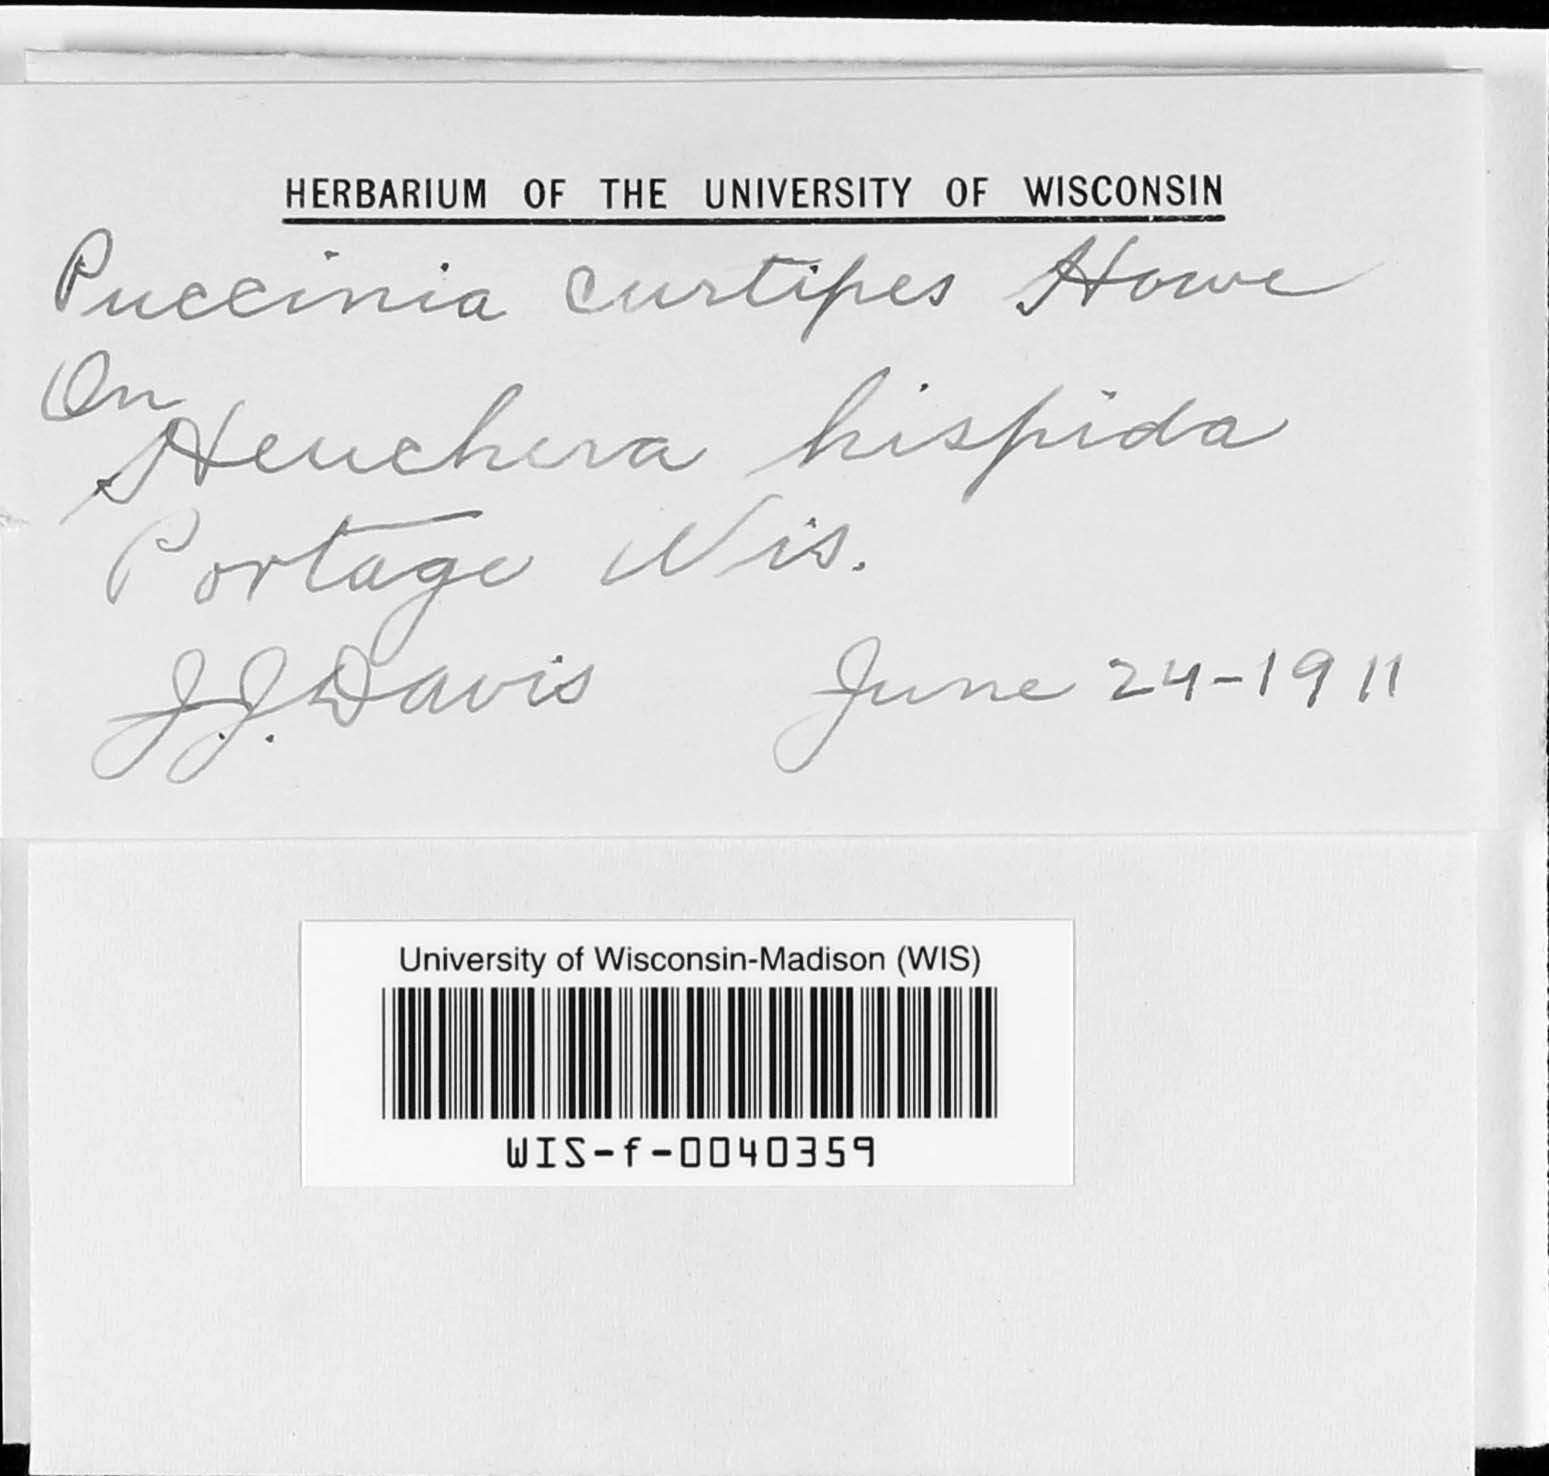 HERBARIUM OF THE UNIVERSITY OF WISCONSIN
Puccinia curtipes Howe
On
Heuchera hispida
Portage Wis.
J.J. Davis June 24-1911
University of Wisconsin-Madison (WIS)
WIS-f-0040359